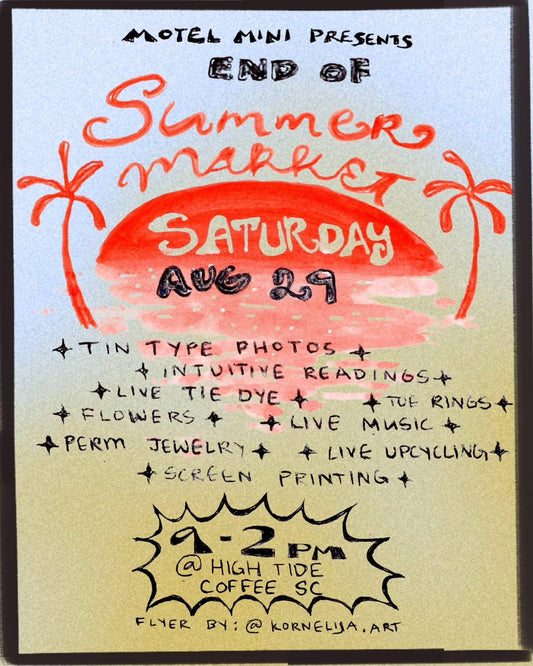 MOTEL MINI PRESENTS
END OF
SUMMER
MARKET
SATURDAY
AUG 29
TIN TYPE PHOTOS
INTUITIVE READINGS
LIVE TIE DYE
TOE RINGS
FLOWERS
LIVE MUSIC
PERM JEWELRY
LIVE UPCYCLING
SCREEN PRINTING
9-2 PM
@ HIGH TIDE
COFFEE SC
FLYER BY: @ KORNELIJA.ART